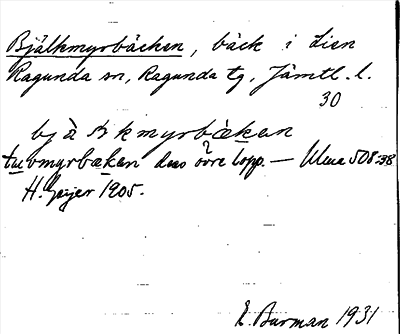 Bjälkmyrbäcken, bäck i Lien
Ragunda sn, Ragunda tg, Jämtl. l.
30
bjà kmyrbækan
tuvmyrbækan dess övre lopp. —
H. Geijer 1905.
E. Burman 1931